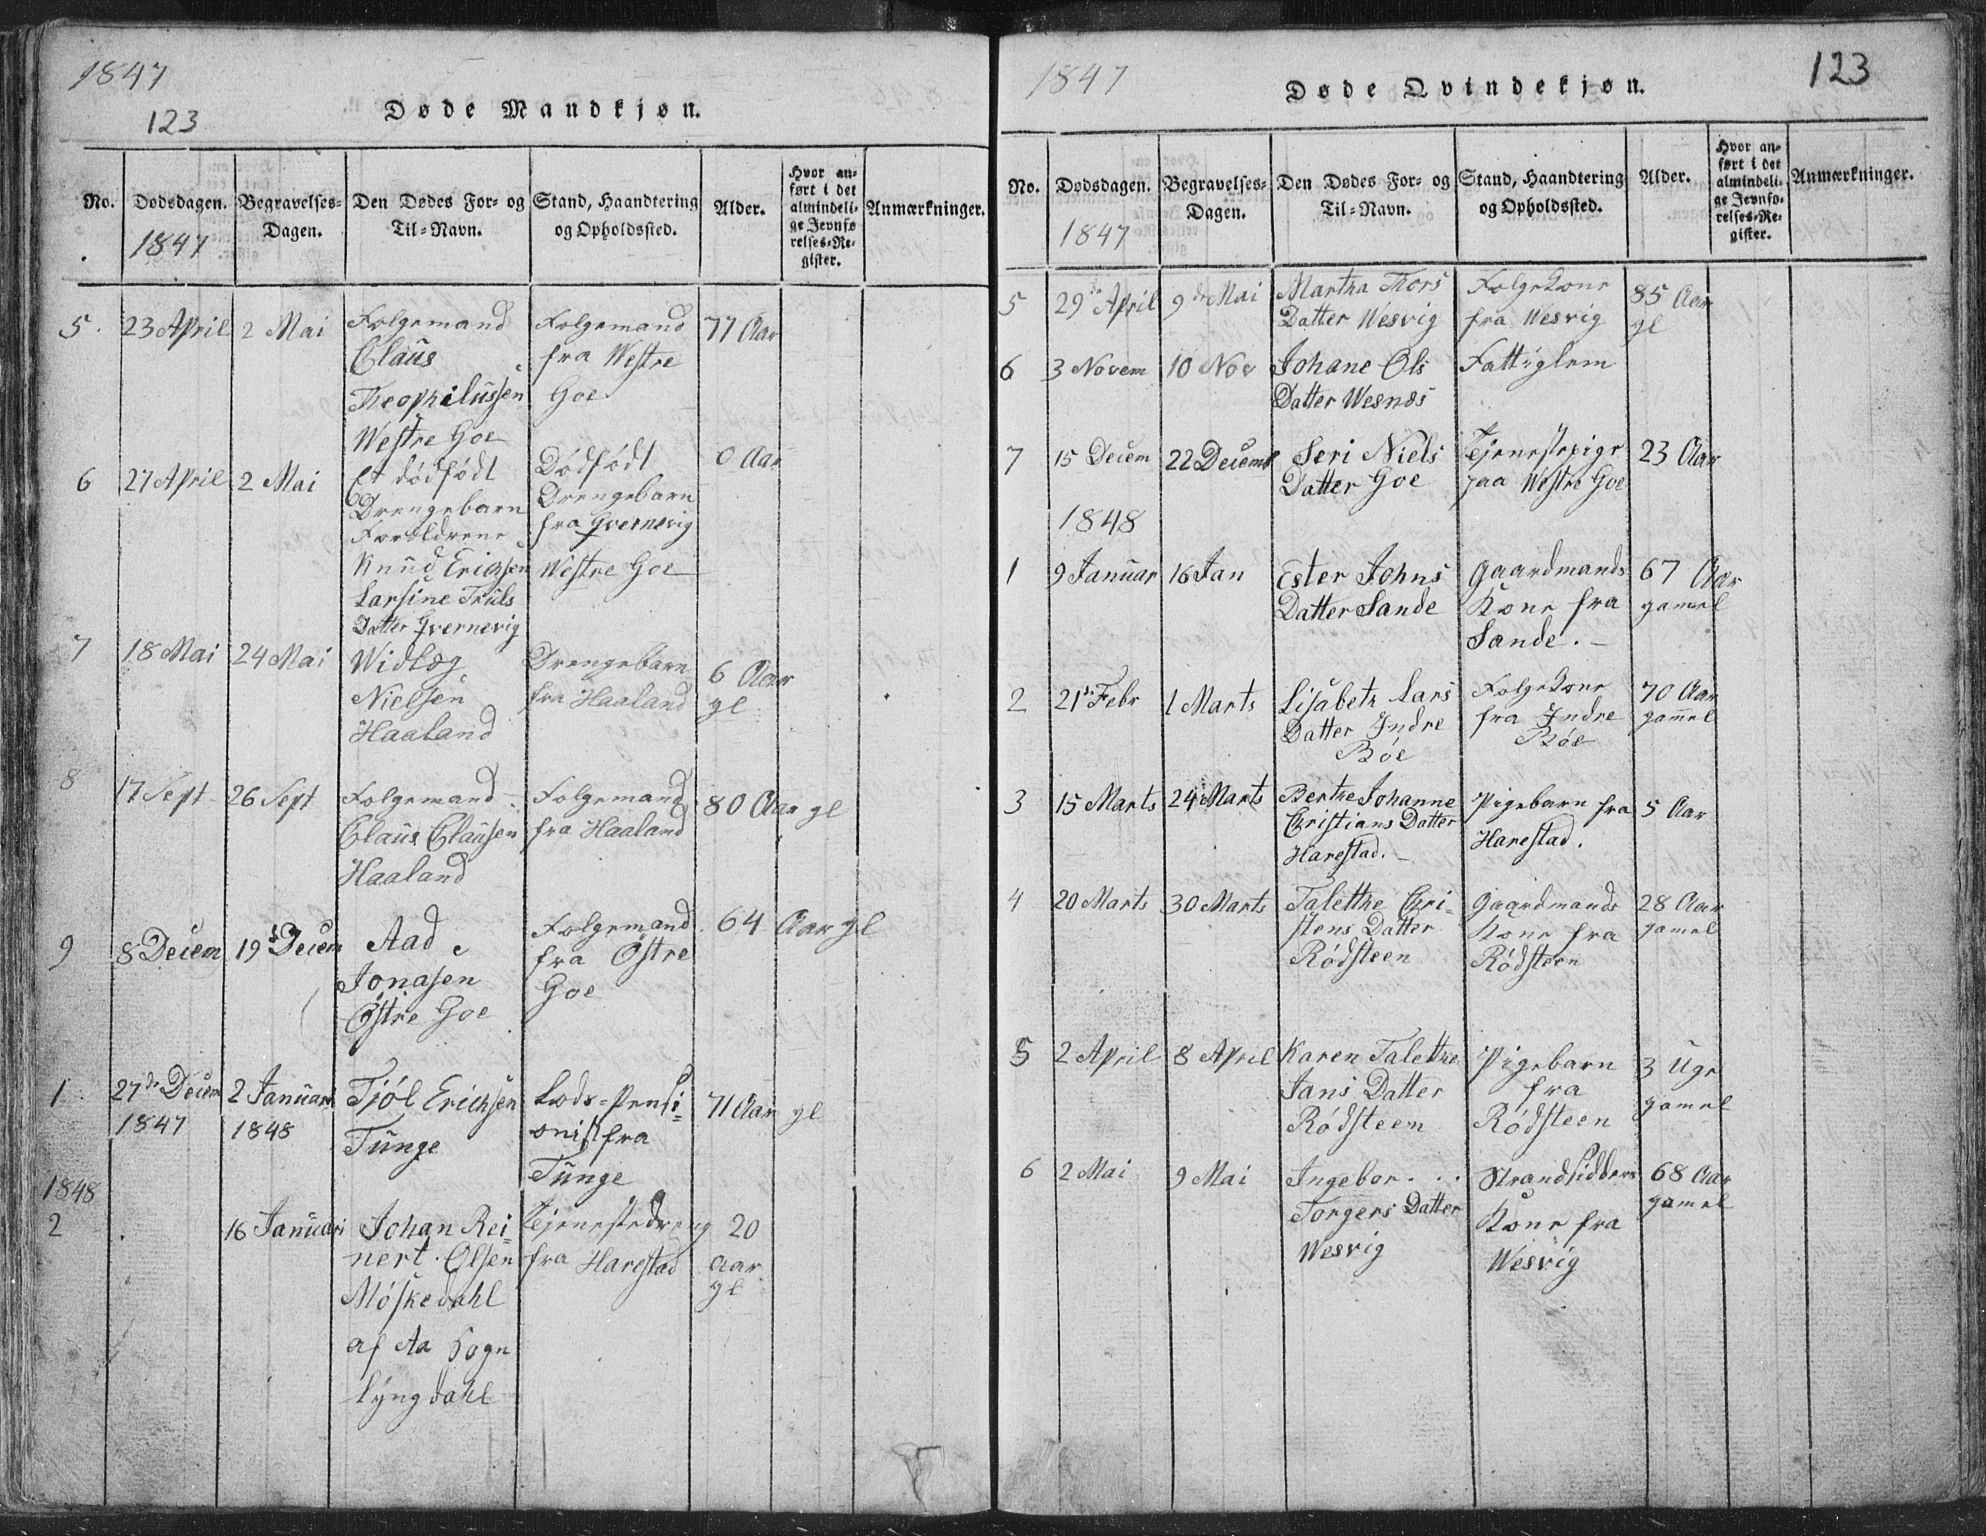 1847
123
Døde Mandkjøn.
No.
Dødsdagen.
1847
Begravelses-
Dagen.
Den Dødes For- og
Til-Navn.
Stand, Haandtering
og Opholdssted.
Alder.
Hvor an-
ført i det
almindeli-
ge Jevnfø-
relses-Re-
gister.
Anmærkninger.
5.
23 April
2 Mai
Folgemand
Claus
Theophilussen
Westre Goe
Folgemand
fra Westre
Goe
77 Aar
6
27 April
2 Mai
Et dödfödt
Drengebarn
Forældrene
Knud Erichsen
Larsine Truls
Datter Qvernevig
Dödfödt
Drengebarn
fra Qvernevig
Westre Goe
0 Aar
7
18 Mai
24 Mai
Widlog
Nielsen
Haaland
Drengebarn
fra Haaland
6 Aar
gl
8
17 Sept
26 Sept
Folgemand
Claus Clausen
Haaland
Folgemand
fra Haaland
80 Aar gl
9
8 Decem
19 Decem
Aad
Jonasen
Östre Goe
Folgemand
fra Östre
Goe
64 Aar gl
1
27de Decem
1847
2 Januari
1848
Tjöl Erichsen
Tunge
Lods-Pensi-
onist fra
Tunge
71 Aar gl
1848
2
16 Januari
Johan Rei-
nert Olsen
Möskedahl
af Aa Sogn
Lyngdahl
Tjenestedreng
fra Harestad
20
Aar
gl
1847
123
Døde Qvindekjøn.
No.
Dødsdagen.
1847
Begravelses-
Dagen.
Den Dødes For- og
Til-Navn.
Stand, Haandtering
og Opholdssted.
Alder.
Hvor an-
ført i det
almindeli-
ge Jevnfø-
relses-Re-
gister.
Anmærkninger.
5
29de April
9de Mai
Martha Thors
Datter Wesvig
Folgekone
fra Wesvig
85 Aar
gl
6
3 Novem
10 Nov
Johane Ols
Datter Wesnes
Fattiglem
7
15 Decem
22 Decemb
Seri Niels
Datter Goe
Tjenestepige
paa Westre Goe
23 Aar
1848
1
9 Januar
16 Jan
Ester Johns
Datter Sande
Gaardmands
Kone fra
Sande. -
67 Aar
gamel
2
21de Febr
1 Marts
Lisabeth Lars
Datter Indre
Böe
Folgekone
fra Indre
Böe
70 Aar
gammel
3
15 Marts
24 Marts
Berthe Johanne
Christians Datter
Harestad. -
Pigebarn fra
Harestad.
5 Aar
4
20 Marts
30 Marts
Talethe Chri-
stens Datter
Rödsteen
Gaardmands
Kone fra
Rödsteen
28 Aar
gamel
5
2 April
8 April
Karen Talethe
Jans Datter
Rödsteen
Pigebarn
fra
Rödsteen
3 Uger
gamel
6
2 Mai
9 Mai
Ingebor . .
Torgers Datter
Wesvig
Strandsidders
Kone fra
Wesvig
68 Aar
gamel